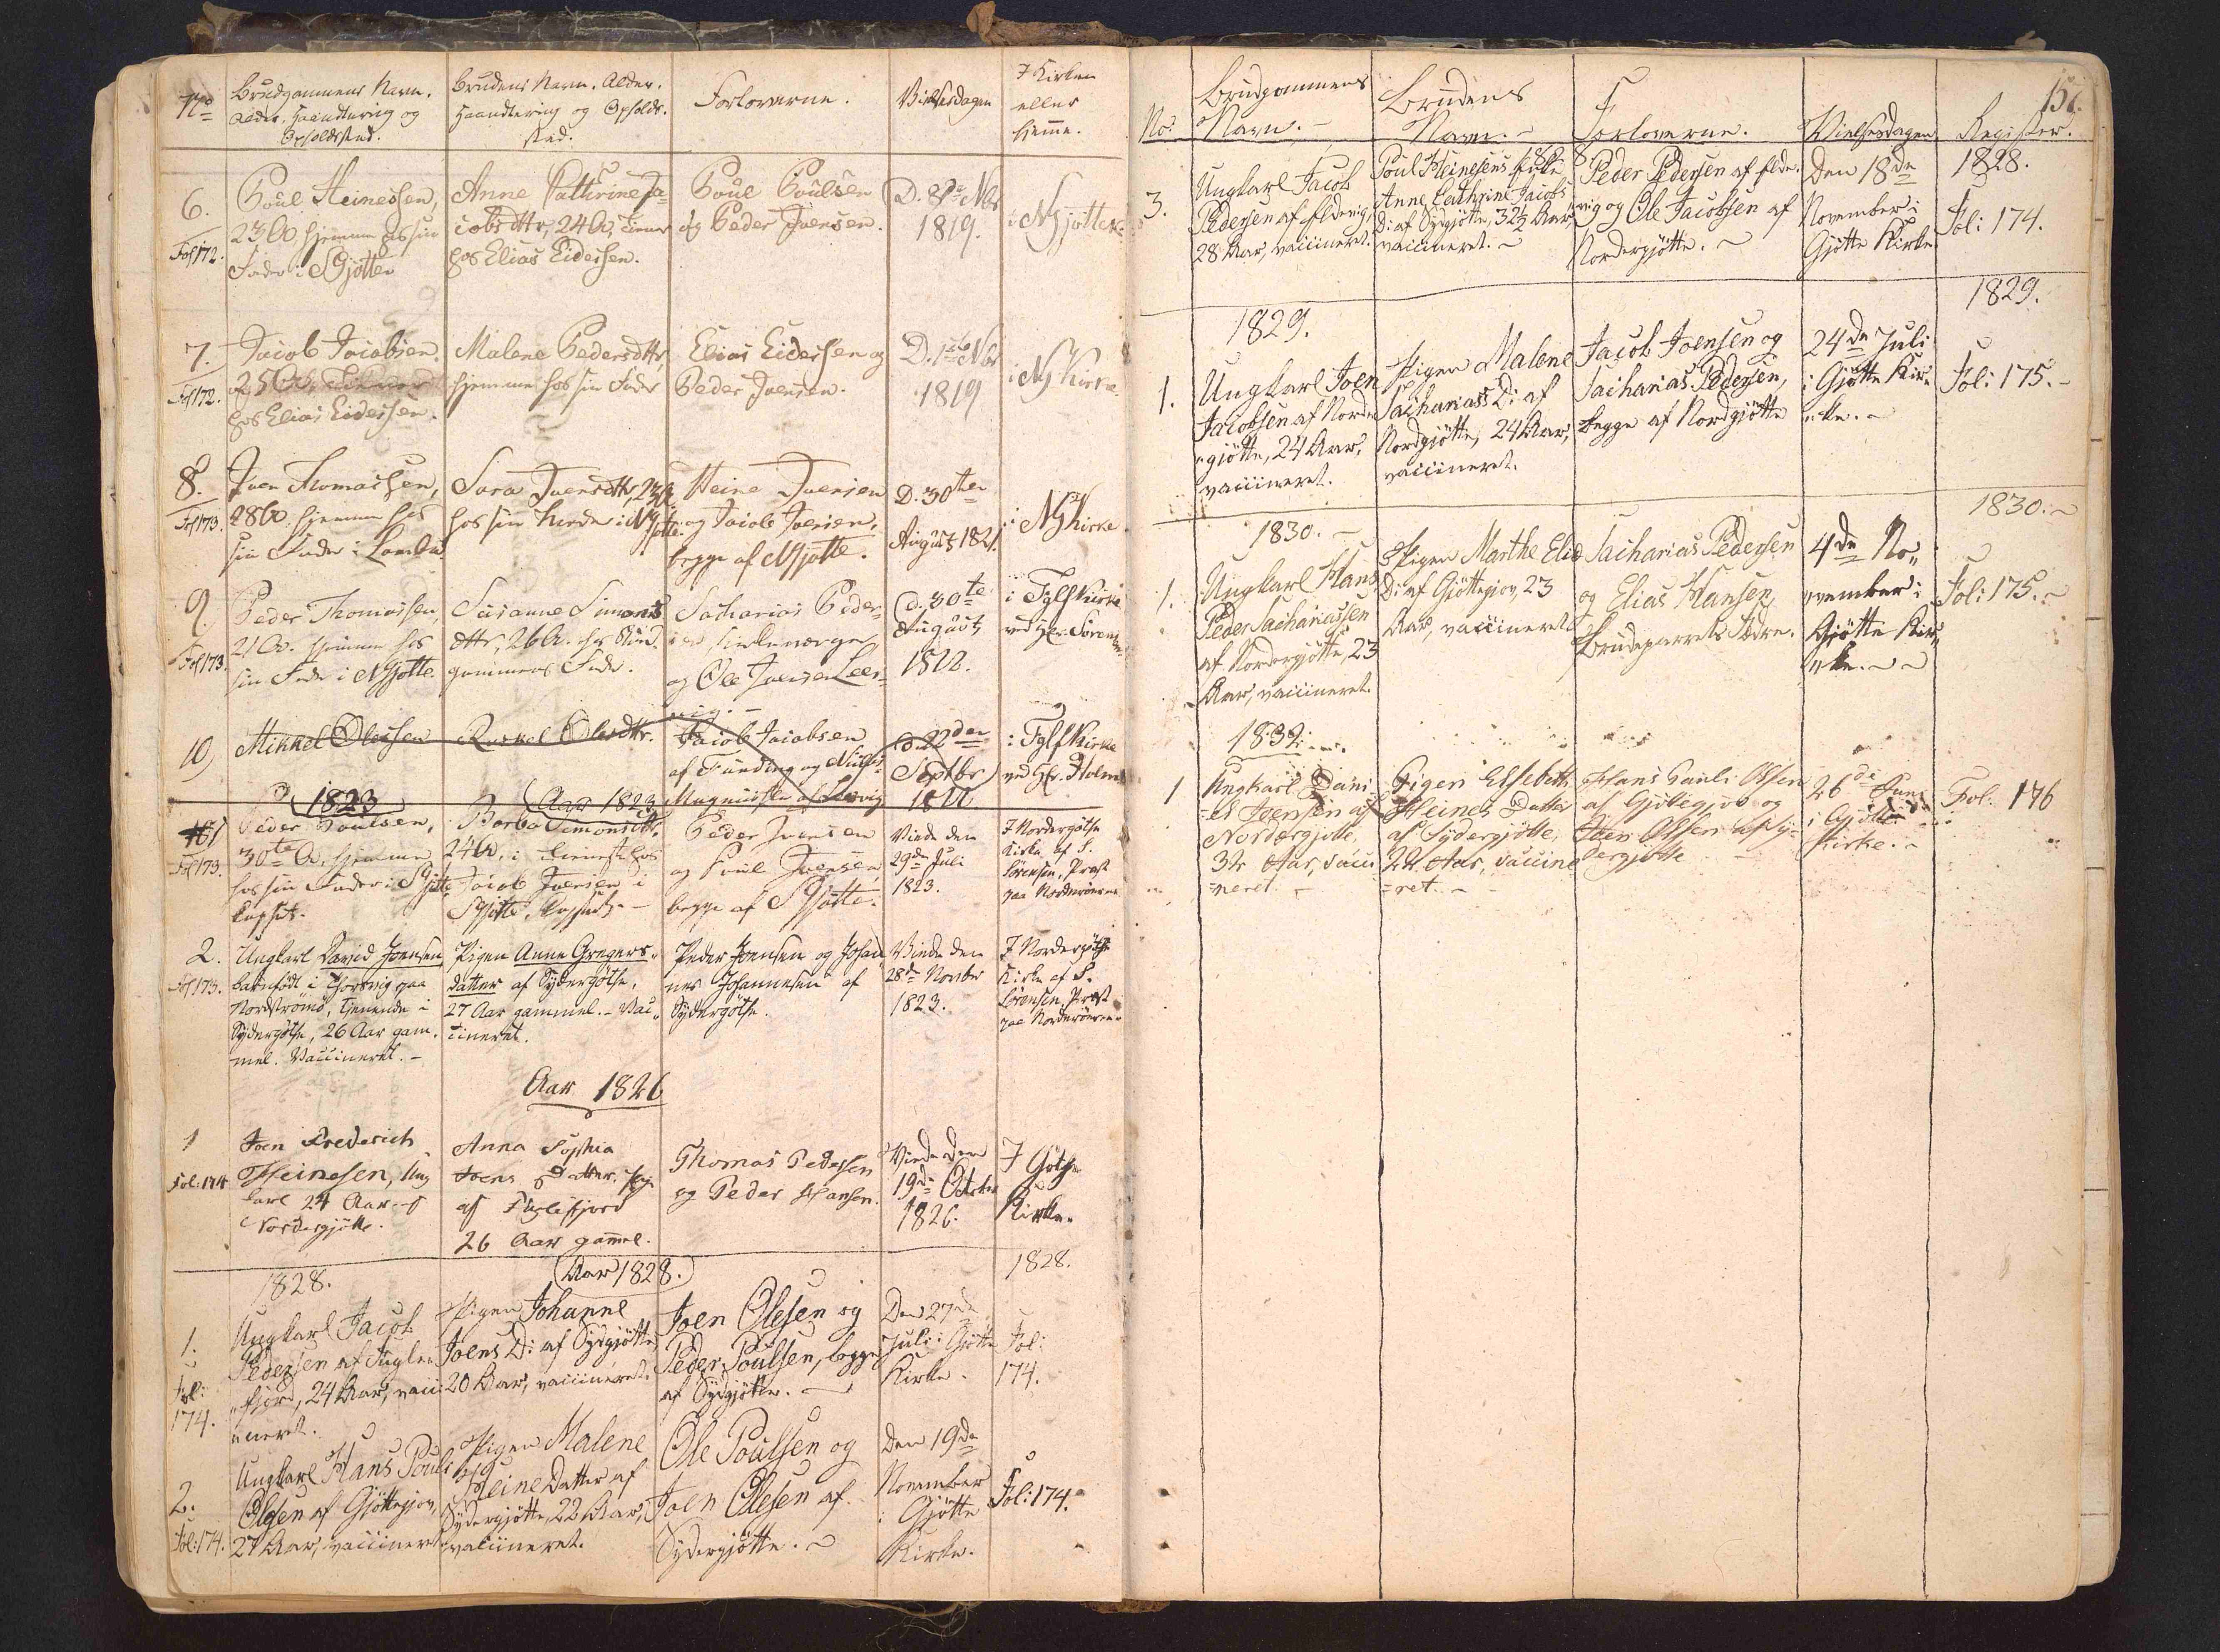 No
Brudgommens Navn.
Alder, Haandtering og
Opholdsted.
Brudens Navn. Alder.
Haandtering og Opholds-
sted.
Forloverne.
Vielsesdagen
I Kirken
eller
hjemme.
6.
Fol 172.
Poul Heinessen,
23 A. hjemme hos sin
Fader i SGjøtte
Anne Cathrine Ja-
cobsdttr, 24 A, tiener
hos Elias Eidessen.
Poul Poulsen
og Peder Joensen.
D. 8de Nbr
1819.
i NGjøttek.
7.
Fol 172.
Jacob Jacobsen.
25 A. tiener
hos Elias Eidessen.
Malene Pedersdttr,
hjemme hos sin Fader
Elias Eidessen og
Peder Joensen.
D. 1ste Nbr
1819
i NG Kirke.
8.
Fol 173.
Joen Thomassen,
28 A. hjemme hos
sin Fader i Lamba
Sara Joensdttr, 23 A
hos sin Moder i NGjøtte.
Heine Joensen
og Jacob Joensen,
begge af NGjøtte.
D. 30ten
August 1821.
i NG Kirke.
9.
Fol 173.
Peder Thomassen,
21 A. hjemme hos
sin Fader i NGjøtte.
Susanne Simons
dttr, 26 A. hos Brud-
gommens Fader.
Sacharias Peder-
sen
og Ole Joensen Leer-
vig.
d. 30te
August
1822.
i Fglf Kirke
ved Hr. Sørensen
10)
Mikkel Olessen
Rackel Olesdttr.
Jacob Jacobsen
af Funding og
Magnussen af Lervig
d. 22den
Septbr
1822
i Fglf Kirke
ved Hr. Holm
1823
Aar 1823
1
Fol 173.
Peder Poulsen,
30te A. hjemme
hos sin Fader i SGjøtte
Copsat.
Barba Simonsdttr.
24 A, i Tieneste hos
Jacob Joensen i
SGjøtte. Copsat.
Peder Joensen
og Poul Joensen
begge af SGjøtte.
Viede den
29de Juli
1823.
I Nordergøthe
Kirke af S.
Sørensen, Præst
paa Norderøerne
2.
Fol 173.
Ungkarl David Joensen
barnfødt i Thorsvig paa
Nordstrømø, tjenende i
Sydergøthe, 26 Aar gam-
mel. Vaccineret.
Pigen Anne Gregers-
datter af Sydergøthe,
27 Aar gammel. - Vac-
cineret.
Peder Joensen og Johan-
nes Johannesen af
Sydergøthe.
Viede den
28de Novbr
1823.
I Nordergøthe
Kirke af S.
Sørensen, Præst
paa Norderøerne
Aar 1826
1
Fol. 174
Joen Frederich
Heinesen, Ung-
karl 24 Aar af
Nordergjøtte.
Anna Sophia
Joens Datter, Pige
af Fuglefjord
26 Aar gammel.
Thomas Pedersen
og Peder Hansen.
Viede den
19de October
1826.
I Gøthe
Kirke.
1828.
Aar 1828.
1828.
1.
Fol:
174.
Ungkarl Jacob
Pedersen af Fugle-
fjord, 24 Aar, vacci-
neret.
Pigen Johanne
Joens D: af Sydgjøtte
20 Aar, vaccineret.
Joen Olesen og
Peder Poulsen, begge
af Sydgjøtte.
Den 27de
Juli i Gjøtte
Kirke.
Fol:
174.
2.
Fol: 174.
Ungkarl Hans Pouls
Olesen af Gjøttegjov,
27 Aar, vaccineret
Pigen Malene
Heine Datter af
Sydergjøtte, 22 Aar,
vaccineret.
Ole Poulsen og
Joen Olesen af
Sydergjøtte.
Den 19de
November
i Gjøtte
Kirke.
Fol: 174.
No:
Brudgommens
Navn.
Brudens
Navn.
Forloverne.
Vielsesdagen
Register.
3.
Ungkarl Jacob
Pedersen af Eldevig,
28 Aar, vaccineret.
Poul Heinesens Enke
Anne Cathrine Jacobs
D: af Sydgjøtte, 32½ Aar,
vaccineret.
Peder Pedersen af Elde-
vig og Ole Jacobsen af
Nordergjøtte.
Den 18de
November i
Gjøtte Kirke
1828.
Fol: 174.
1829.
1829.
1.
Ungkarl Joen
Jacobsen af Norder-
gjøtte, 24 Aar,
vaccineret.
Pigen Malene
Sacharias D: af
Nordgjøtte, 24 Aar,
vaccineret.
Jacob Joensen og
Sacharias Pedersen,
begge af Nordgjøtte
24de Juli
i Gjøtte Kir-
ke.
Fol: 175.
1830.
1830.
1.
Ungkarl Hans
Peder Sachariassen
af Nordergjøtte, 23
Aar, vaccineret.
Pigen Marthe Elias
D: af Gjøttegjov, 23
Aar, vaccineret.
Sacharias Pedersen
og Elias Hansen,
Brudeparrets Fædre.
4de No-
vember i
Gjøtte Kir-
ke.
Fol: 175.
1832.
1
Ungkarl Dani-
el Joensen af
Nordergjøtte,
32 Aar, vacci-
neret.
Pigen Elsebeth
Heines Datter
af Sydergjøtte,
22 Aar, vaccine
ret.
Hans Pauli Olsen
af Gjøttegjov og
Joen Olsen af Sy-
dergjøtte
26de Juni
i Gjøtte
Kirke.
Fol: 176